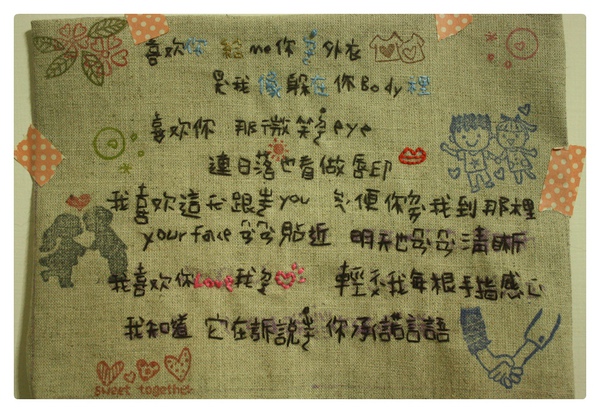 喜欢你 給me你外衣
是我像躲在你Body裡
喜欢你 那微笑eye
連日落也看做唇印
我喜欢這 跟走you 便你我到那裡
your face 貼近 明天也清晰
我喜欢你Love我 輕我每根手指感心
我知道 它在訴說 你承諾言語
sweet together